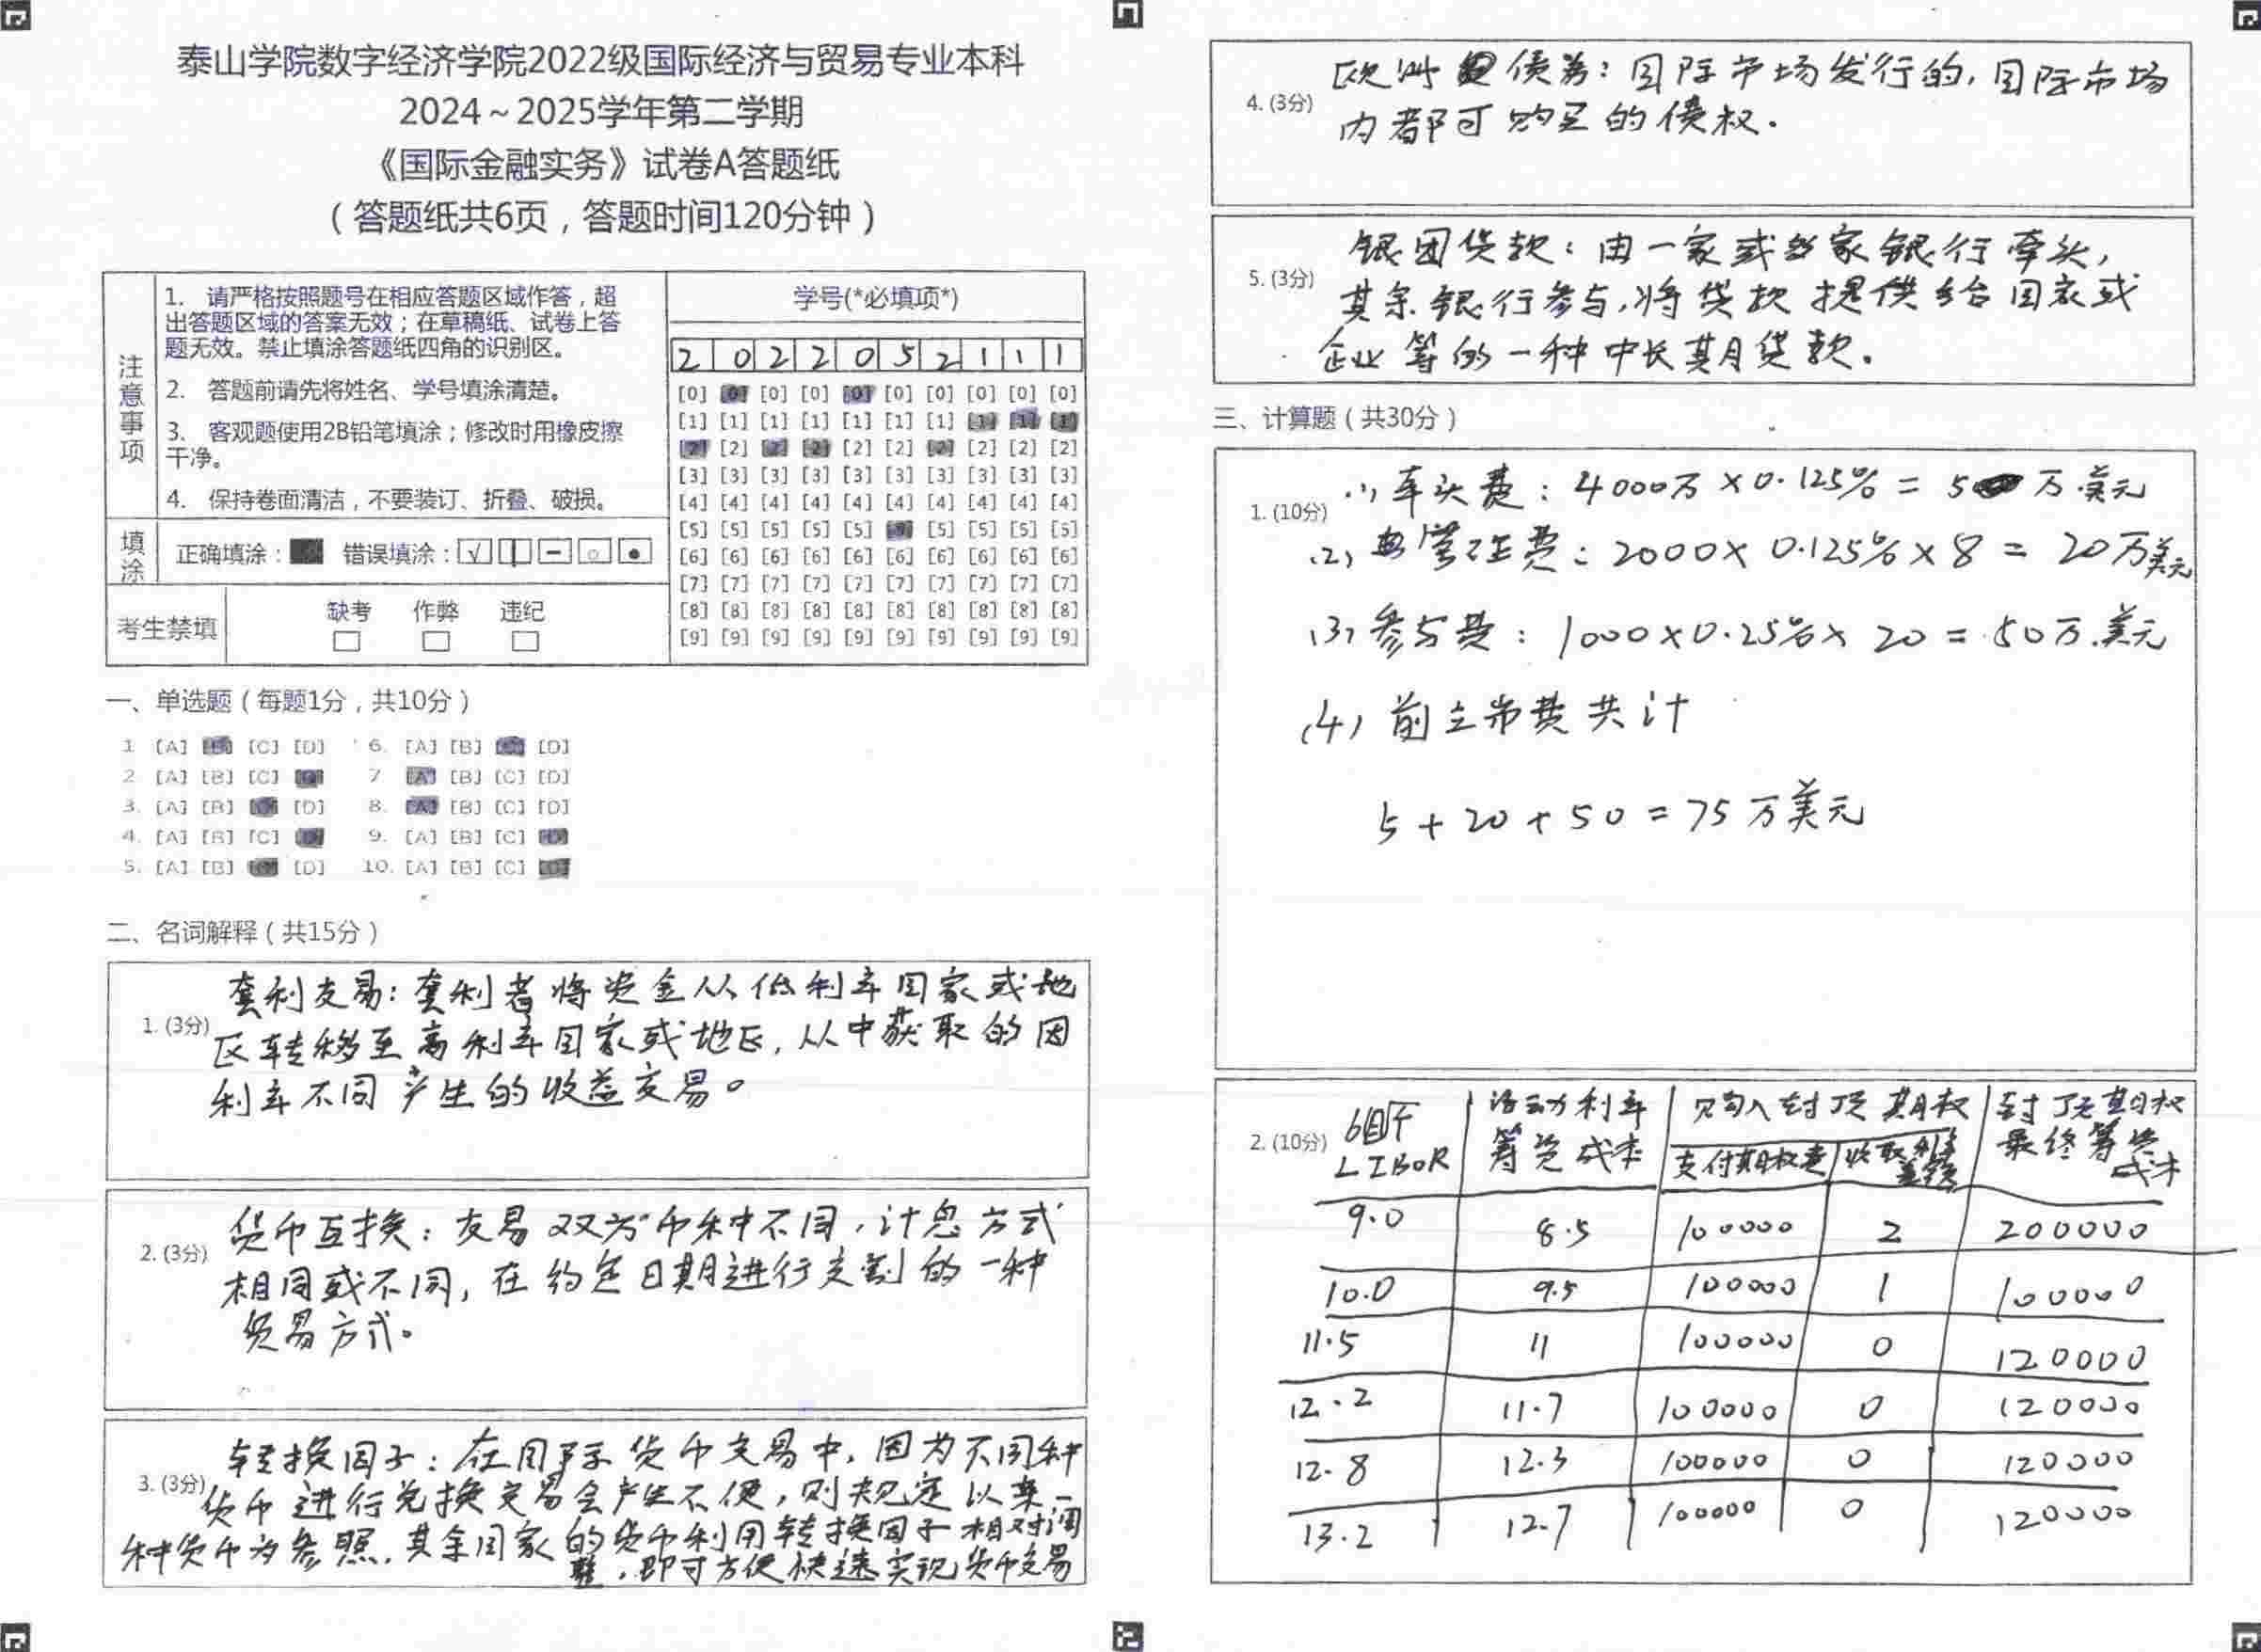 泰山学院数字经济学院2022级国际经济与贸易专业本科
2024～2025学年第二学期
《国际金融实务》试卷A答题纸
（答题纸共6页，答题时间120分钟）
注意事项
1. 请严格按照题号在相应答题区域作答，超
出答题区域的答案无效；在草稿纸、试卷上答
题无效。禁止填涂答题纸四角的识别区。
2. 答题前请先将姓名、学号填涂清楚。
3. 客观题使用2B铅笔填涂；修改时用橡皮擦
干净。
4. 保持卷面清洁，不要装订、折叠、破损。
填涂
正确填涂： 错误填涂：
考生禁填
缺考 作弊 违纪
学号(*必填项*)
2 0 2 2 0 5 2 1 1 1
[0] [0] [0] [0] [0] [0] [0] [0] [0] [0]
[1] [1] [1] [1] [1] [1] [1] [1] [1] [1]
[2] [2] [2] [2] [2] [2] [2] [2] [2] [2]
[3] [3] [3] [3] [3] [3] [3] [3] [3] [3]
[4] [4] [4] [4] [4] [4] [4] [4] [4] [4]
[5] [5] [5] [5] [5] [5] [5] [5] [5]
[6] [6] [6] [6] [6] [6] [6] [6] [6] [6]
[7] [7] [7] [7] [7] [7] [7] [7] [7] [7]
[8] [8] [8] [8] [8] [8] [8] [8] [8] [8]
[9] [9] [9] [9] [9] [9] [9] [9] [9] [9]
一、单选题（每题1分，共10分）
1 [A] [C] [D] 6. [A] [B] [D]
2 [A] [B] [C] 7 [A] [B] [C] [D]
3. [A] [B] [D] 8. [A] [B] [C] [D]
4. [A] [B] [C] 9. [A] [B] [C]
5. [A] [B] [D] 10. [A] [B] [C]
二、名词解释（共15分）
1. (3分)
套利交易：套利者将资金从低利率国家或地
区转移至高利率国家或地区，从中获取的因
利率不同产生的收益交易。
2. (3分)
货币互换：交易双方币种不同，计息方式
相同或不同，在约定日期进行交割的一种
贸易方式。
3. (3分)
转换因子：在国际货币交易中，因为不同种
货币进行兑换交易会产生不便，则规定以某一
种货币为参照，其余国家的货币利用转换因子相对调
整，即可方便快速实现货币交易
4. (3分)
欧洲债券：国际市场发行的，国际市场
内都可购买的债权.
5. (3分)
银团贷款：由一家或多家银行牵头，
其余银行参与，将贷款提供给国家或
企业等的一种中长期贷款.
三、计算题（共30分）
1. (10分)
(1) 牵头费：4000万×0.125%=5万美元
(2) 管理费：2000×0.125%×8=20万美元
(3) 参与费：1000×0.25%×20=50万美元
(4) 前立布费共计
5+20+50=75万美元
2. (10分)
6个月 LIBOR 浮动利率筹资成本 购入封顶期权 封顶期权最终筹资成本
支付期权费 收取利息差额
9.0 8.5 100000 2 200000
10.0 9.5 100000 1 100000
11.5 11 100000 0 120000
12.2 11.7 100000 0 120000
12.8 12.3 100000 0 120000
13.2 12.7 100000 0 120000